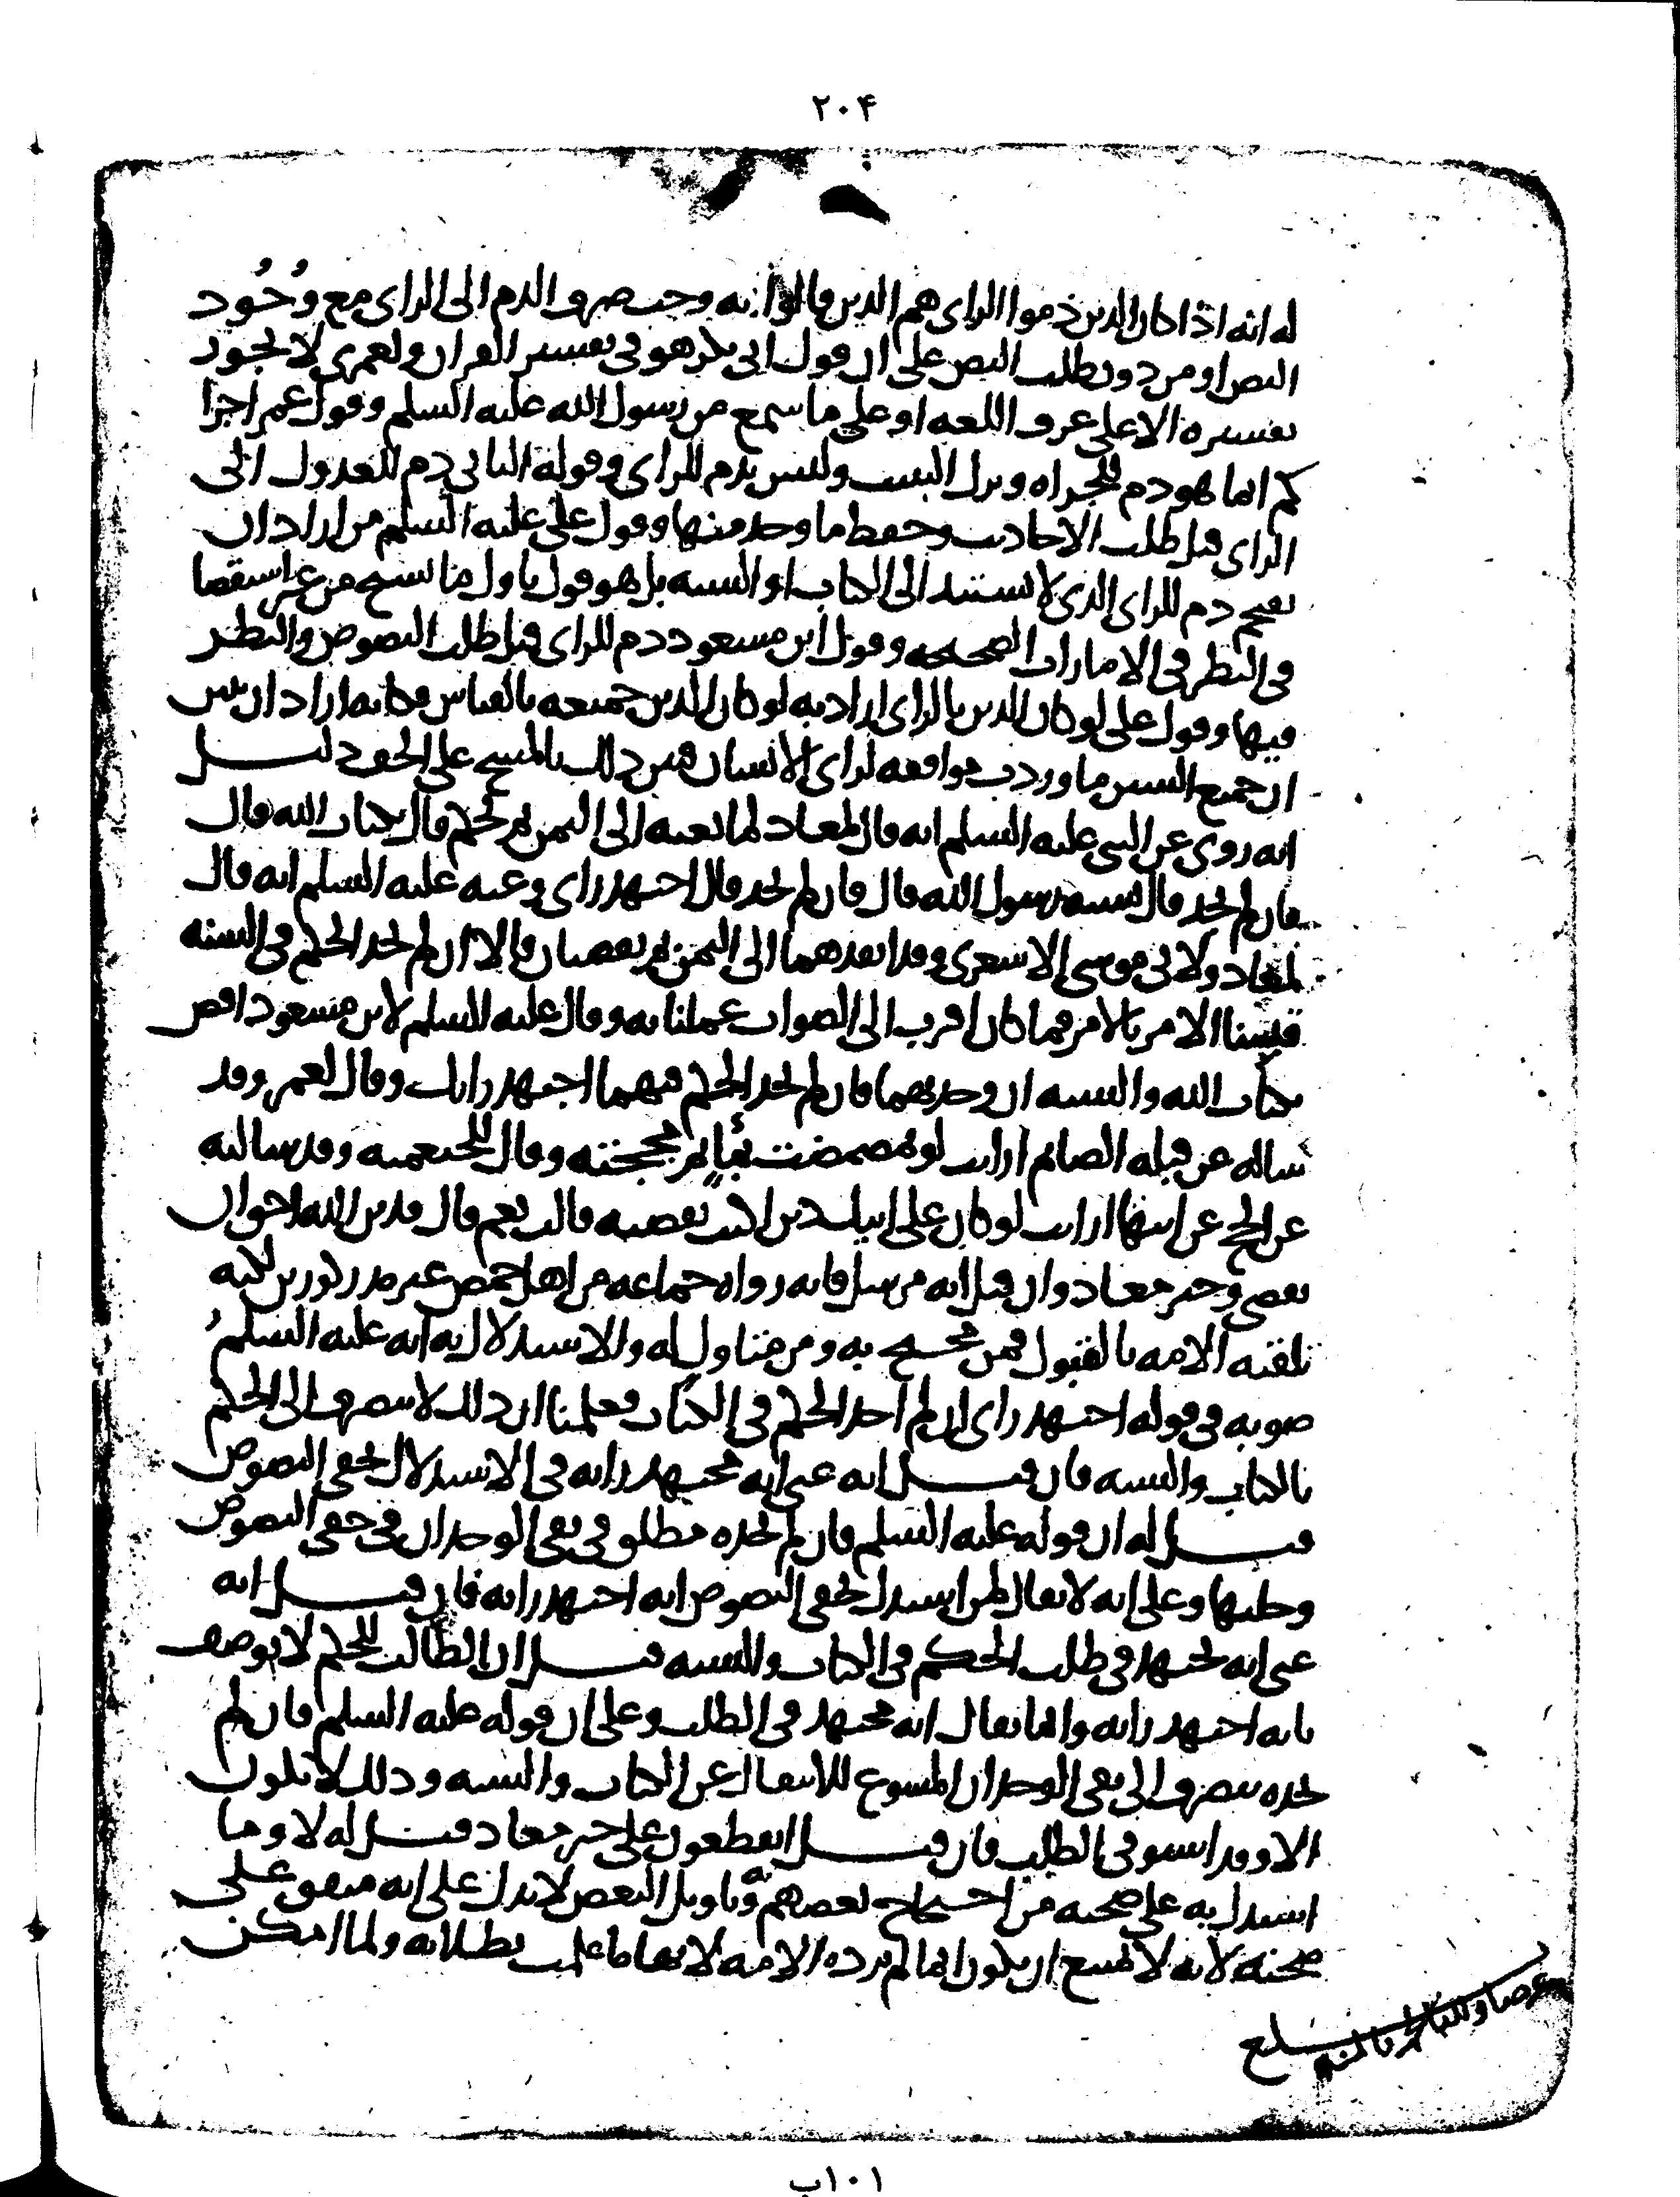 ٢٠۴
له انه اذا كان الذين ذموا الراى هم الذين قالوا به وجب صرف الذم الى الراى مع وُجُود
النص او من دون طلب النص على ان قول ابى بكر هو فى تفسير القران ولعمرى لا يجوز
تفسيره الا على عرف اللغه او على ما سمع من رسول الله عليه السلم وقول عمر اجرا
كم انما هو ذم للجراه وترك التثبت وليس بذم للراى وقوله الثانى ذم للعدول الى
الراى قبل طلب الاحاديث وحفظ ما وجد منها وقول على عليه السلم من اراد ان
يقتحم ذم للراى الذى لا يستند الى الكتاب او السنه بل هو قول باول ما سنح من غير استقصا
فى النظر فى الامارات الصحيحه وقول ابن مسعود ذم للراى قبل طلب النصوص والنظر
فيها وقول على لو كان الدين بالراى اراد به لو كان الدين جميعه بالقياس فكانه اراد ان يبين
ان جميع السنن ما وردت موافقه لراى الانسان فبين ذلك بالمسح على الخف دليل
انه روى عن النبى عليه السلم انه قال لمعاد لما بعثه الى اليمن بم تحكم قال بكتاب الله قال
فان لم تجد قال بسنه رسول الله قال فان لم تجد قال اجتهد راى وعنه عليه السلم انه قال
لمعاد ولابى موسى الاشعرى وقد انفذهما الى اليمن بم تقضيان قالا ان لم نجد الحكم فى السنه
قسنا الامر بالامر فما كان اقرب الى الصواب عملنا به وقال عليه السلم لابن مسعود اقض
بكتاب الله والسنه ان وجدتهما فان لم تجد الحكم فيهما اجتهد رايك وقال لعمر وقد
ساله عن قبله الصايم ارايت لو تمضمضت بماء ثم مججته وقال للخثعميه وقد سالته
عن الحج عن ابيها ارايت لو كان على ابيك دين اكنت تقضيه قالت نعم قال فدين الله احق ان
يقضى وخبر معاذ وان قيل انه مرسل فانه رواه جماعه من اهل حمص غير مذكورين لكنه
تلقته الامه بالقبول فمن محتج به ومن متاول له والاستدلال به انه عليه السلم
صوبه فى قوله اجتهد راى ان لم اجد الحكم فى الكتاب فعلمنا ان ذلك لا ينصرف الى الحكم
بالكتاب والسنه فان قيل انه عنى انه مجتهد رايه فى الاستدلال بخفى النصوص
قيل له ان قوله عليه السلم فان لم تجده مطلق فى نفى الوجدان فى خفى النصوص
وجليها وعلى انه لا يقال لمن استدل بخفى النصوص انه اجتهد رايه فان قيل انه
عنى انه يجتهد فى طلب الحكم فى الكتاب والسنه قيل ان الطالب للحكم لا يوصف
بانه اجتهد رايه وانما يقال انه مجتهد فى الطلب وعلى ان قوله عليه السلم فان لم
تجده ينصرف الى نفى الوجدان المسوغ للانتقال عن الكتاب والسنه وذلك لا يكون
الا وقد استوفى الطلب فان قيل اتقطعون على خبر معاذ قيل له لا وما
استدل به على صحته من احتجاج بعضهم به وتاويل البعض لا يدل على انه متفق على
صحته لانه لا يمتنع ان يكون انما لم ترده الامه لانها ما علمت بطلانه ولما امكن
بلغ
١٠١ب